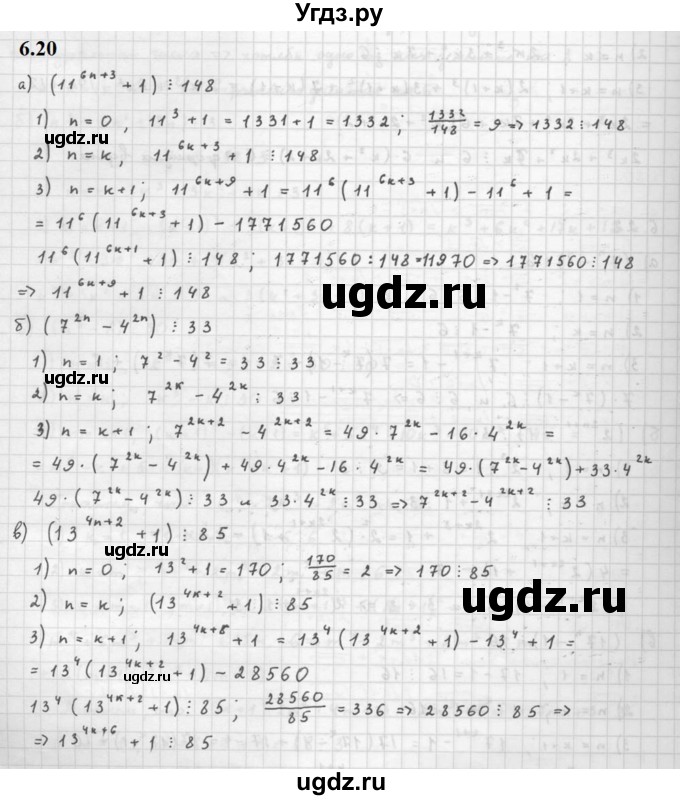 Угдз.ру
6.20
а) (11^{6n+3} + 1) ⋮ 148
1) n = 0, 11^3 + 1 = 1331 + 1 = 1332; 1332/148 = 9 => 1332 ⋮ 148
угдз.ру
2) n = k, 11^{6k+3} + 1 ⋮ 148
3) n = k+1; 11^{6k+9} + 1 = 11^6 (11^{6k+3} + 1) - 11^6 + 1 =
= 11^6 (11^{6k+3} + 1) - 1771560
угдз.ру
11^6 (11^{6k+1} + 1) ⋮ 148; 1771560 : 148 = 11970 => 1771560 ⋮ 148
=> 11^{6k+9} + 1 ⋮ 148
угдз.ру
б) (7^{2n} - 4^{2n}) ⋮ 33
1) n = 1; 7^2 - 4^2 = 33 ⋮ 33
угдз.ру
2) n = k; 7^{2k} - 4^{2k} ⋮ 33
3) n = k+1; 7^{2k+2} - 4^{2k+2} = 49 · 7^{2k} - 16 · 4^{2k} =
= 49 · (7^{2k} - 4^{2k}) + 49 · 4^{2k} - 16 · 4^{2k} = 49 · (7^{2k} - 4^{2k}) + 33 · 4^{2k}
угдз.ру
49 · (7^{2k} - 4^{2k}) ⋮ 33 и 33 · 4^{2k} ⋮ 33 => 7^{2k+2} - 4^{2k+2} ⋮ 33
в) (13^{4n+2} + 1) ⋮ 85
угдз.ру
1) n = 0; 13^2 + 1 = 170; 170/85 = 2 => 170 ⋮ 85
угдз.ру
2) n = k; (13^{4k+2} + 1) ⋮ 85
3) n = k+1; 13^{4k+8} + 1 = 13^4 (13^{4k+2} + 1) - 13^4 + 1 =
= 13^4 (13^{4k+2} + 1) - 28560
угдз.ру
13^4 (13^{4k+2} + 1) ⋮ 85; 28560/85 = 336 => 28560 ⋮ 85 =>
=> 13^{4k+6} + 1 ⋮ 85
угдз.ру
угдз.ру